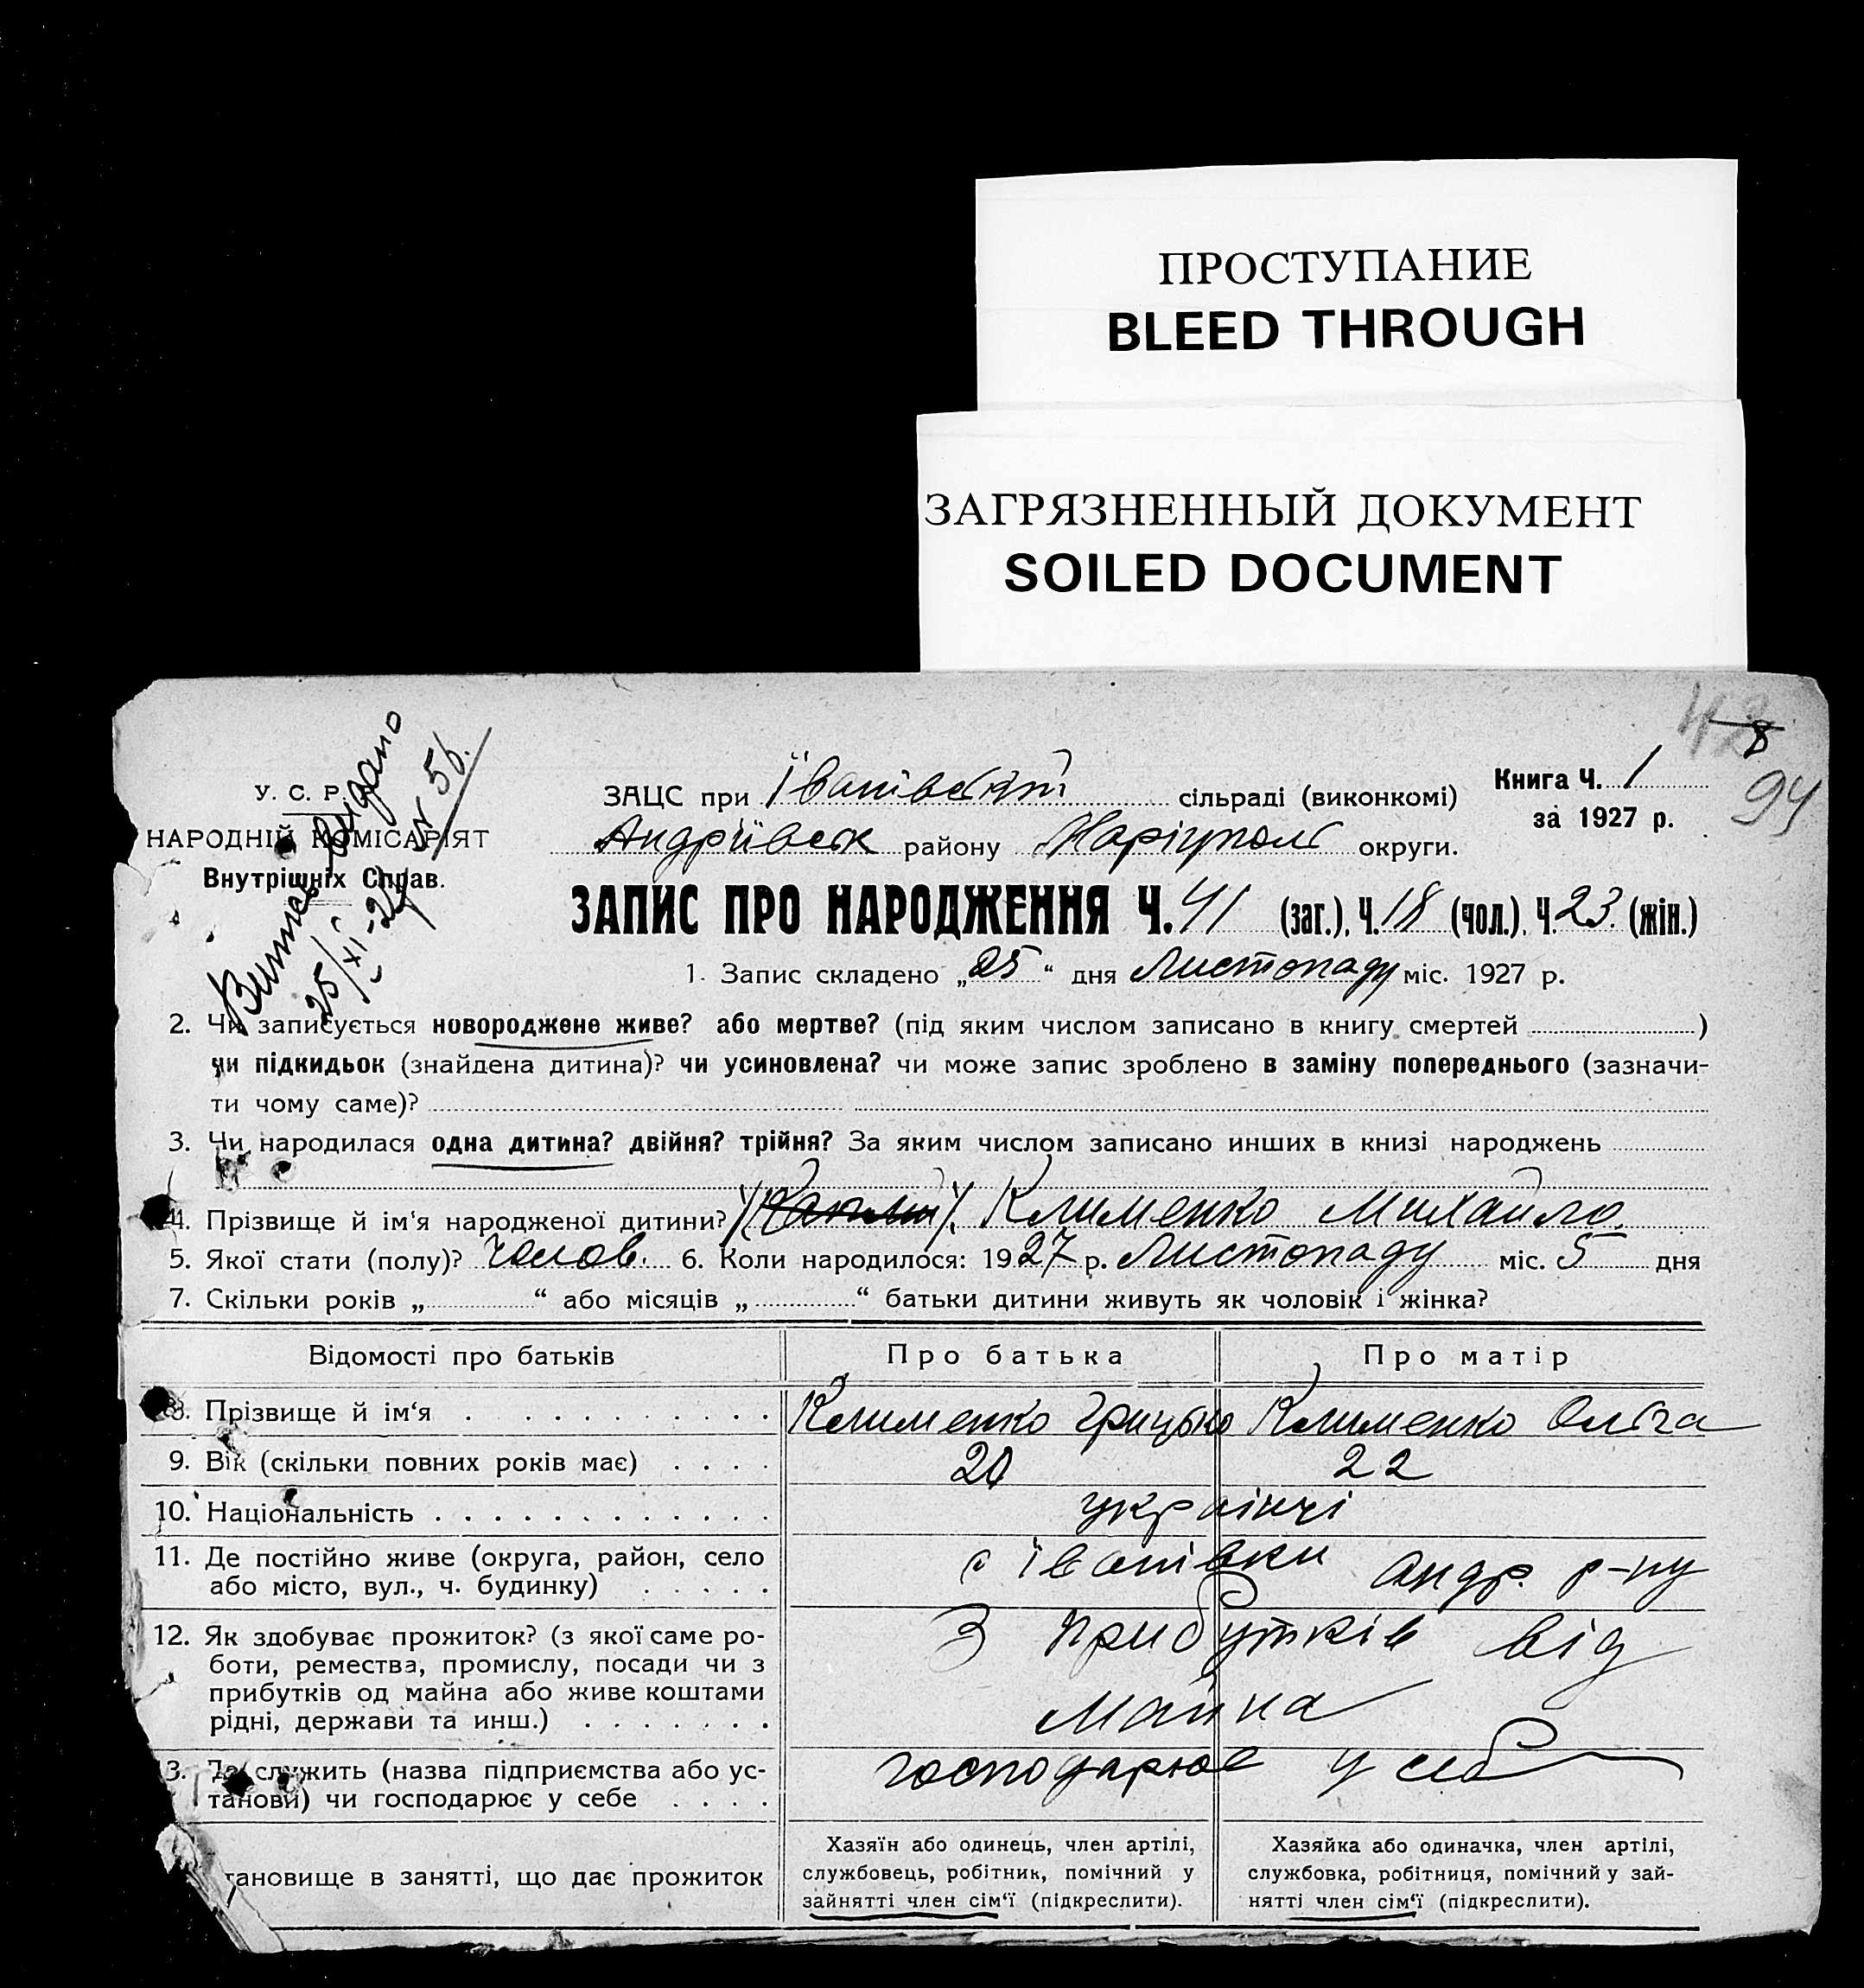 ПРОСТУПАНИЕ
BLEED THROUGH
ЗАГРЯЗНЕННЫЙ ДОКУМЕНТ
SOILED DOCUMENT
8
94
У. С. Р.
НАРОДНІЙ КОМІСАРІЯТ
Внутрішніх Справ.
Витяг видано
25/XI-27 № 56.
ЗАЦС при Іванівській сільраді (виконкомі)
Книга Ч. 1
за 1927 р.
Андріївськ району Маріупольс округи.
ЗАПИС ПРО НАРОДЖЕННЯ Ч. 41 (заг.), Ч. 18 (чол.), Ч. 23. (жін.)
1. Запис складено „25“ дня Листопаду міс. 1927 р.
2. Чи записується новороджене живе? або мертве? (під яким числом записано в книгу смертей )
чи підкидьок (знайдена дитина)? чи усиновлена? чи може запис зроблено в заміну попереднього (зазначи-
ти чому саме)?
3. Чи народилася одна дитина? двійня? трійня? За яким числом записано инших в книзі народжень
4. Прізвище й ім'я народженої дитини? Клименко Михайло.
5. Якої стати (полу)? Челов. 6. Коли народилося: 1927 р. Листопаду міс. 5 дня
7. Скільки років „ “ або місяців „ “ батьки дитини живуть як чоловік і жінка?
Відомості про батьків Про батька Про матір
8. Прізвище й ім‘я Клименко Грицько Клименко Ольга
9. Вік (скільки повних років має) 20 22
10. Національність українці
11. Де постійно живе (округа, район, село
або місто, вул., ч. будинку)
с Іванівки Андр. р-ну
12. Як здобуває прожиток? (з якої саме ро-
боти, ремества, промислу, посади чи з
прибутків од майна або живе коштами
рідні, держави та инш.)
З прибутків від
майна
13. Де служить (назва підприємства або ус-
танови) чи господарює у себе
господарює у себе
тановище в занятті, що дає прожиток
Хазяїн або одинець, член артілі,
службовець, робітник, помічний у
зайнятті член сім‘ї (підкреслити).
Хазяйка або одиначка, член артілі,
службовка, робітниця, помічний у зай-
нятті член сім‘ї (підкреслити).